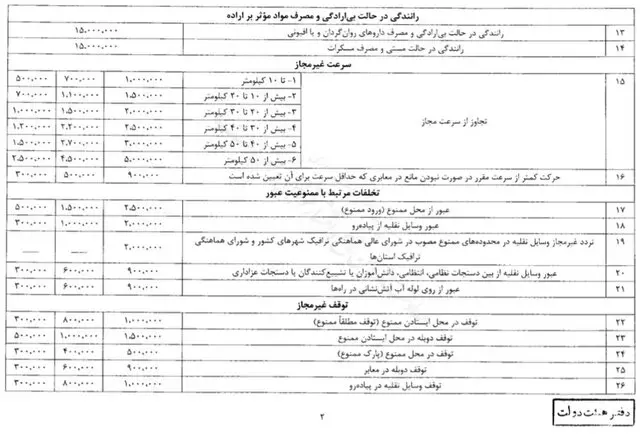 رانندگی در حالت بی‌ارادگی و مصرف مواد مؤثر بر اراده
۱۳ رانندگی در حالت بی‌ارادگی و مصرف داروهای روان‌گردان و یا افیونی ۱۵.۰۰۰.۰۰۰
۱۴ رانندگی در حالت مستی و مصرف مسکرات ۱۵.۰۰۰.۰۰۰
سرعت غیرمجاز
۱۵ تجاوز از سرعت مجاز
۱- تا ۱۰ کیلومتر ۱.۰۰۰.۰۰۰ ۷۰۰.۰۰۰ ۵۰۰.۰۰۰
۲- بیش از ۱۰ تا ۲۰ کیلومتر ۱.۵۰۰.۰۰۰ ۱.۱۰۰.۰۰۰ ۷۰۰.۰۰۰
۳- بیش از ۲۰ تا ۳۰ کیلومتر ۲.۰۰۰.۰۰۰ ۱.۵۰۰.۰۰۰ ۱.۰۰۰.۰۰۰
۴- بیش از ۳۰ تا ۴۰ کیلومتر ۲.۵۰۰.۰۰۰ ۲.۲۰۰.۰۰۰ ۱.۲۰۰.۰۰۰
۵- بیش از ۴۰ تا ۵۰ کیلومتر ۴.۰۰۰.۰۰۰ ۲.۷۰۰.۰۰۰ ۱.۵۰۰.۰۰۰
۶- بیش از ۵۰ کیلومتر ۵.۰۰۰.۰۰۰ ۴.۵۰۰.۰۰۰ ۲.۵۰۰.۰۰۰
۱۶ حرکت کمتر از سرعت مقرر در صورت نبودن مانع در معابری که حداقل سرعت برای آن تعیین شده است ۹۰۰.۰۰۰ ۵۰۰.۰۰۰ ۳۰۰.۰۰۰
تخلفات مرتبط با ممنوعیت عبور
۱۷ عبور از محل ممنوع (ورود ممنوع) ۲.۵۰۰.۰۰۰ ۱.۵۰۰.۰۰۰ ۵۰۰.۰۰۰
۱۸ عبور وسایل نقلیه از پیاده‌رو ۲.۰۰۰.۰۰۰ ۱.۰۰۰.۰۰۰ ۳۰۰.۰۰۰
۱۹ تردد غیرمجاز وسایل نقلیه در محدوده‌های ممنوع مصوب در شورای عالی هماهنگی ترافیک شهرهای کشور و شورای هماهنگی ۲.۰۰۰.۰۰۰ — —
ترافیک استان‌ها
۲۰ عبور وسایل نقلیه از بین دستجات نظامی، انتظامی، دانش‌آموزان یا تشییع‌کنندگان یا دستجات عزاداری ۹۰۰.۰۰۰ ۶۰۰.۰۰۰ ۳۰۰.۰۰۰
۲۱ عبور از روی لوله آب آتش‌نشانی در راه‌ها ۹۰۰.۰۰۰ ۶۰۰.۰۰۰ ۳۰۰.۰۰۰
توقف غیرمجاز
۲۲ توقف در محل ایستادن ممنوع (توقف مطلقاً ممنوع) ۱.۰۰۰.۰۰۰ ۸۰۰.۰۰۰ ۳۰۰.۰۰۰
۲۳ توقف دوبله در محل ایستادن ممنوع ۱.۵۰۰.۰۰۰ ۱.۰۰۰.۰۰۰ ۵۰۰.۰۰۰
۲۴ توقف در محل ممنوع (پارک ممنوع) ۵۰۰.۰۰۰ ۴۰۰.۰۰۰ ۳۰۰.۰۰۰
۲۵ توقف دوبله در معابر ۹۰۰.۰۰۰ ۶۰۰.۰۰۰ ۳۰۰.۰۰۰
۲۶ توقف وسایل نقلیه در پیاده‌رو ۱.۰۰۰.۰۰۰ ۸۰۰.۰۰۰ ۳۰۰.۰۰۰
۲
دفتر هیئت دولت